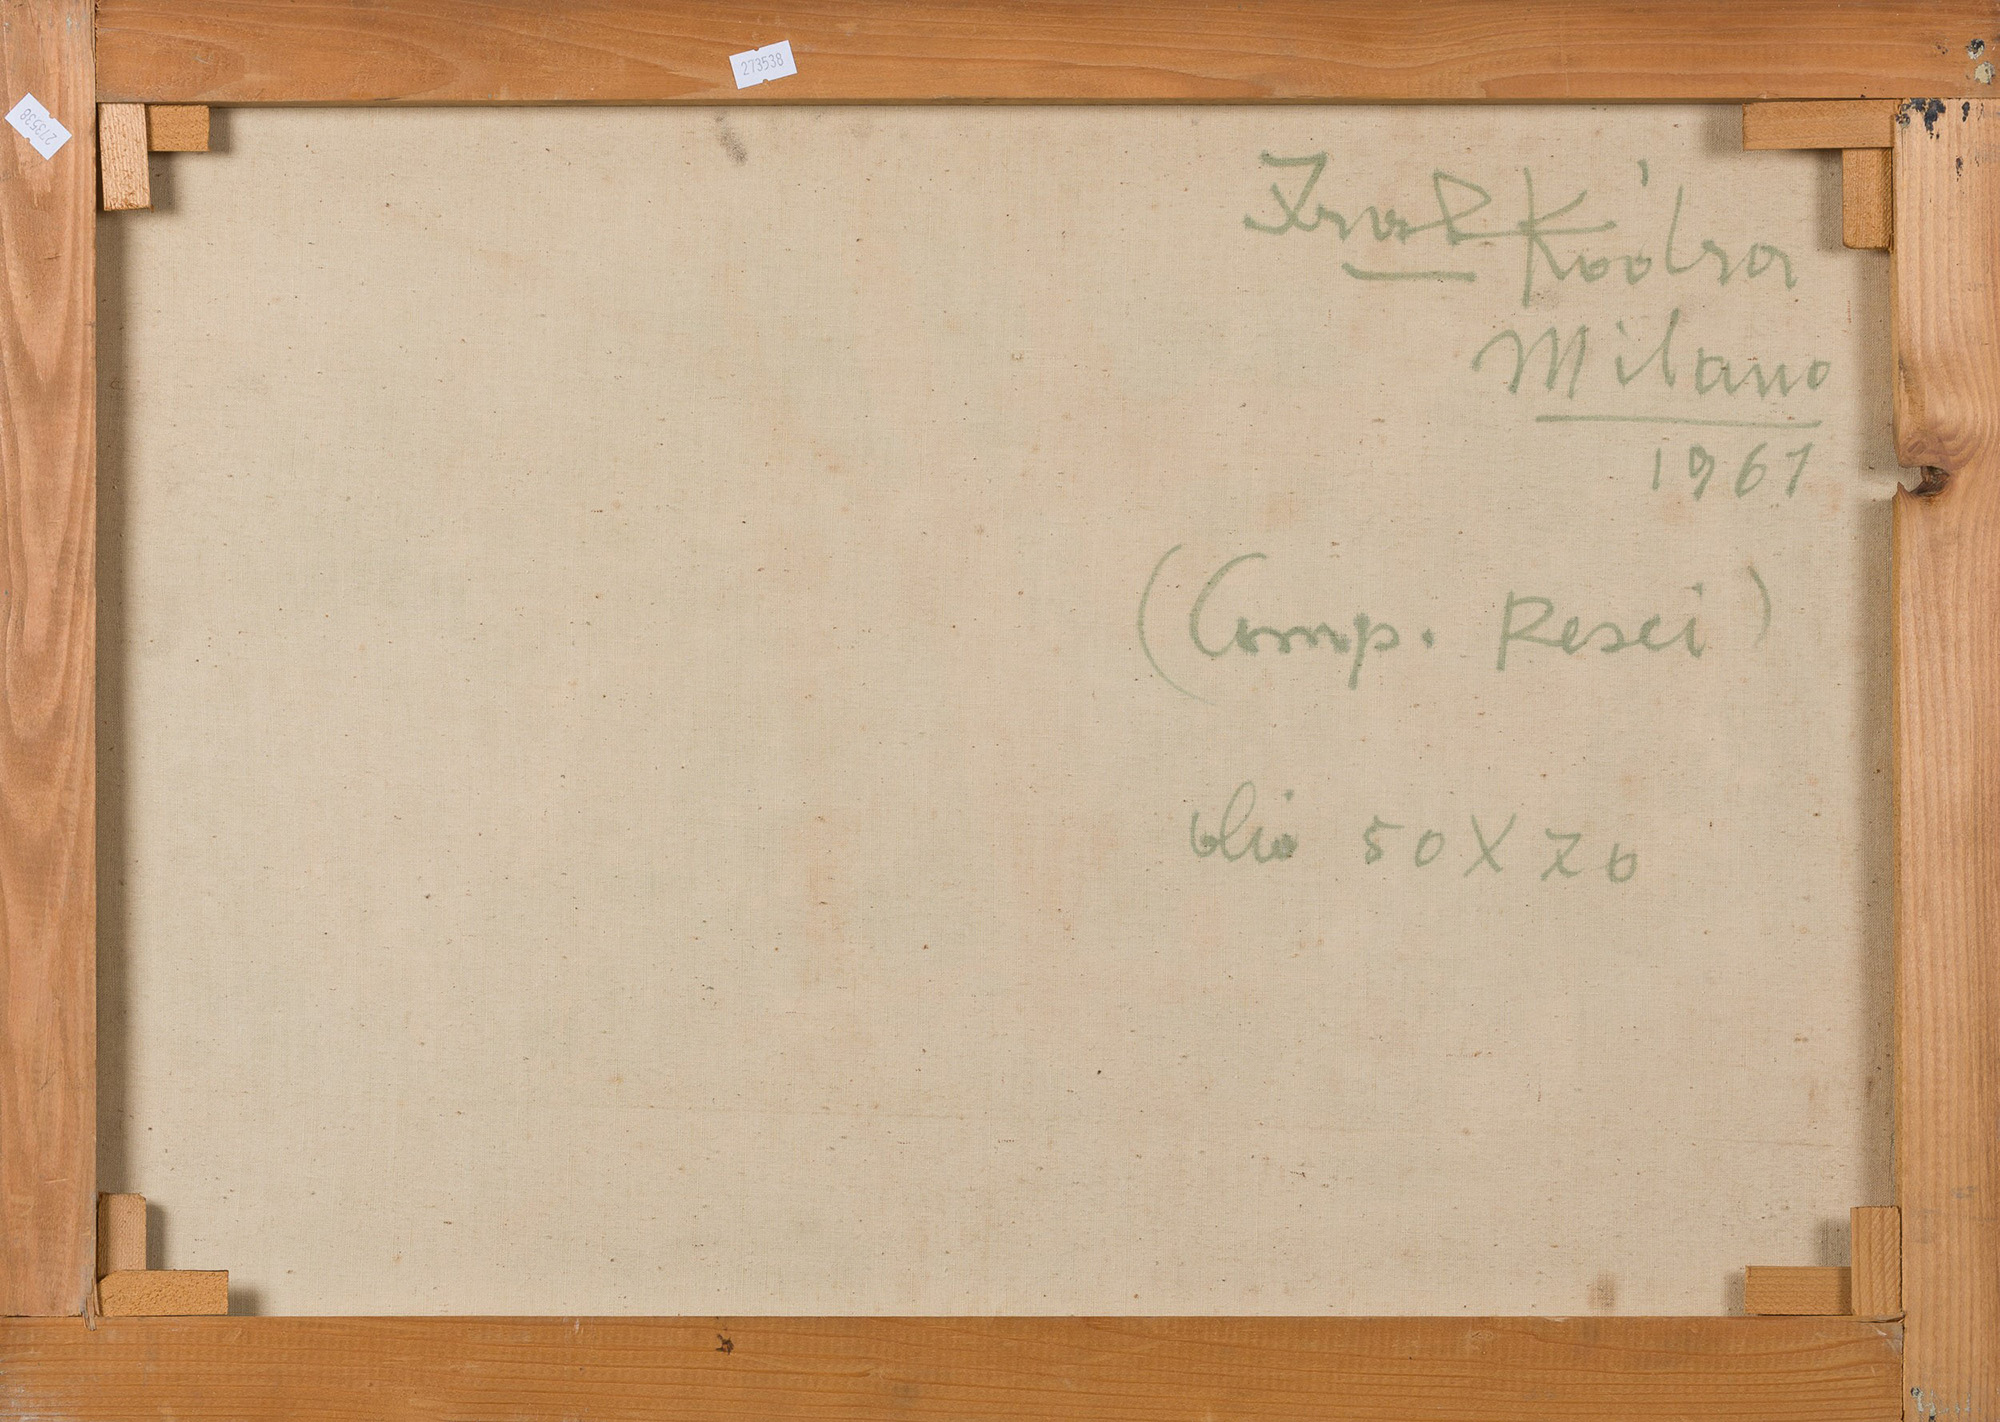 273538
273538
Ibrahim Kodra
Milano
1961
(Comp. Pesci)
olio 50X70